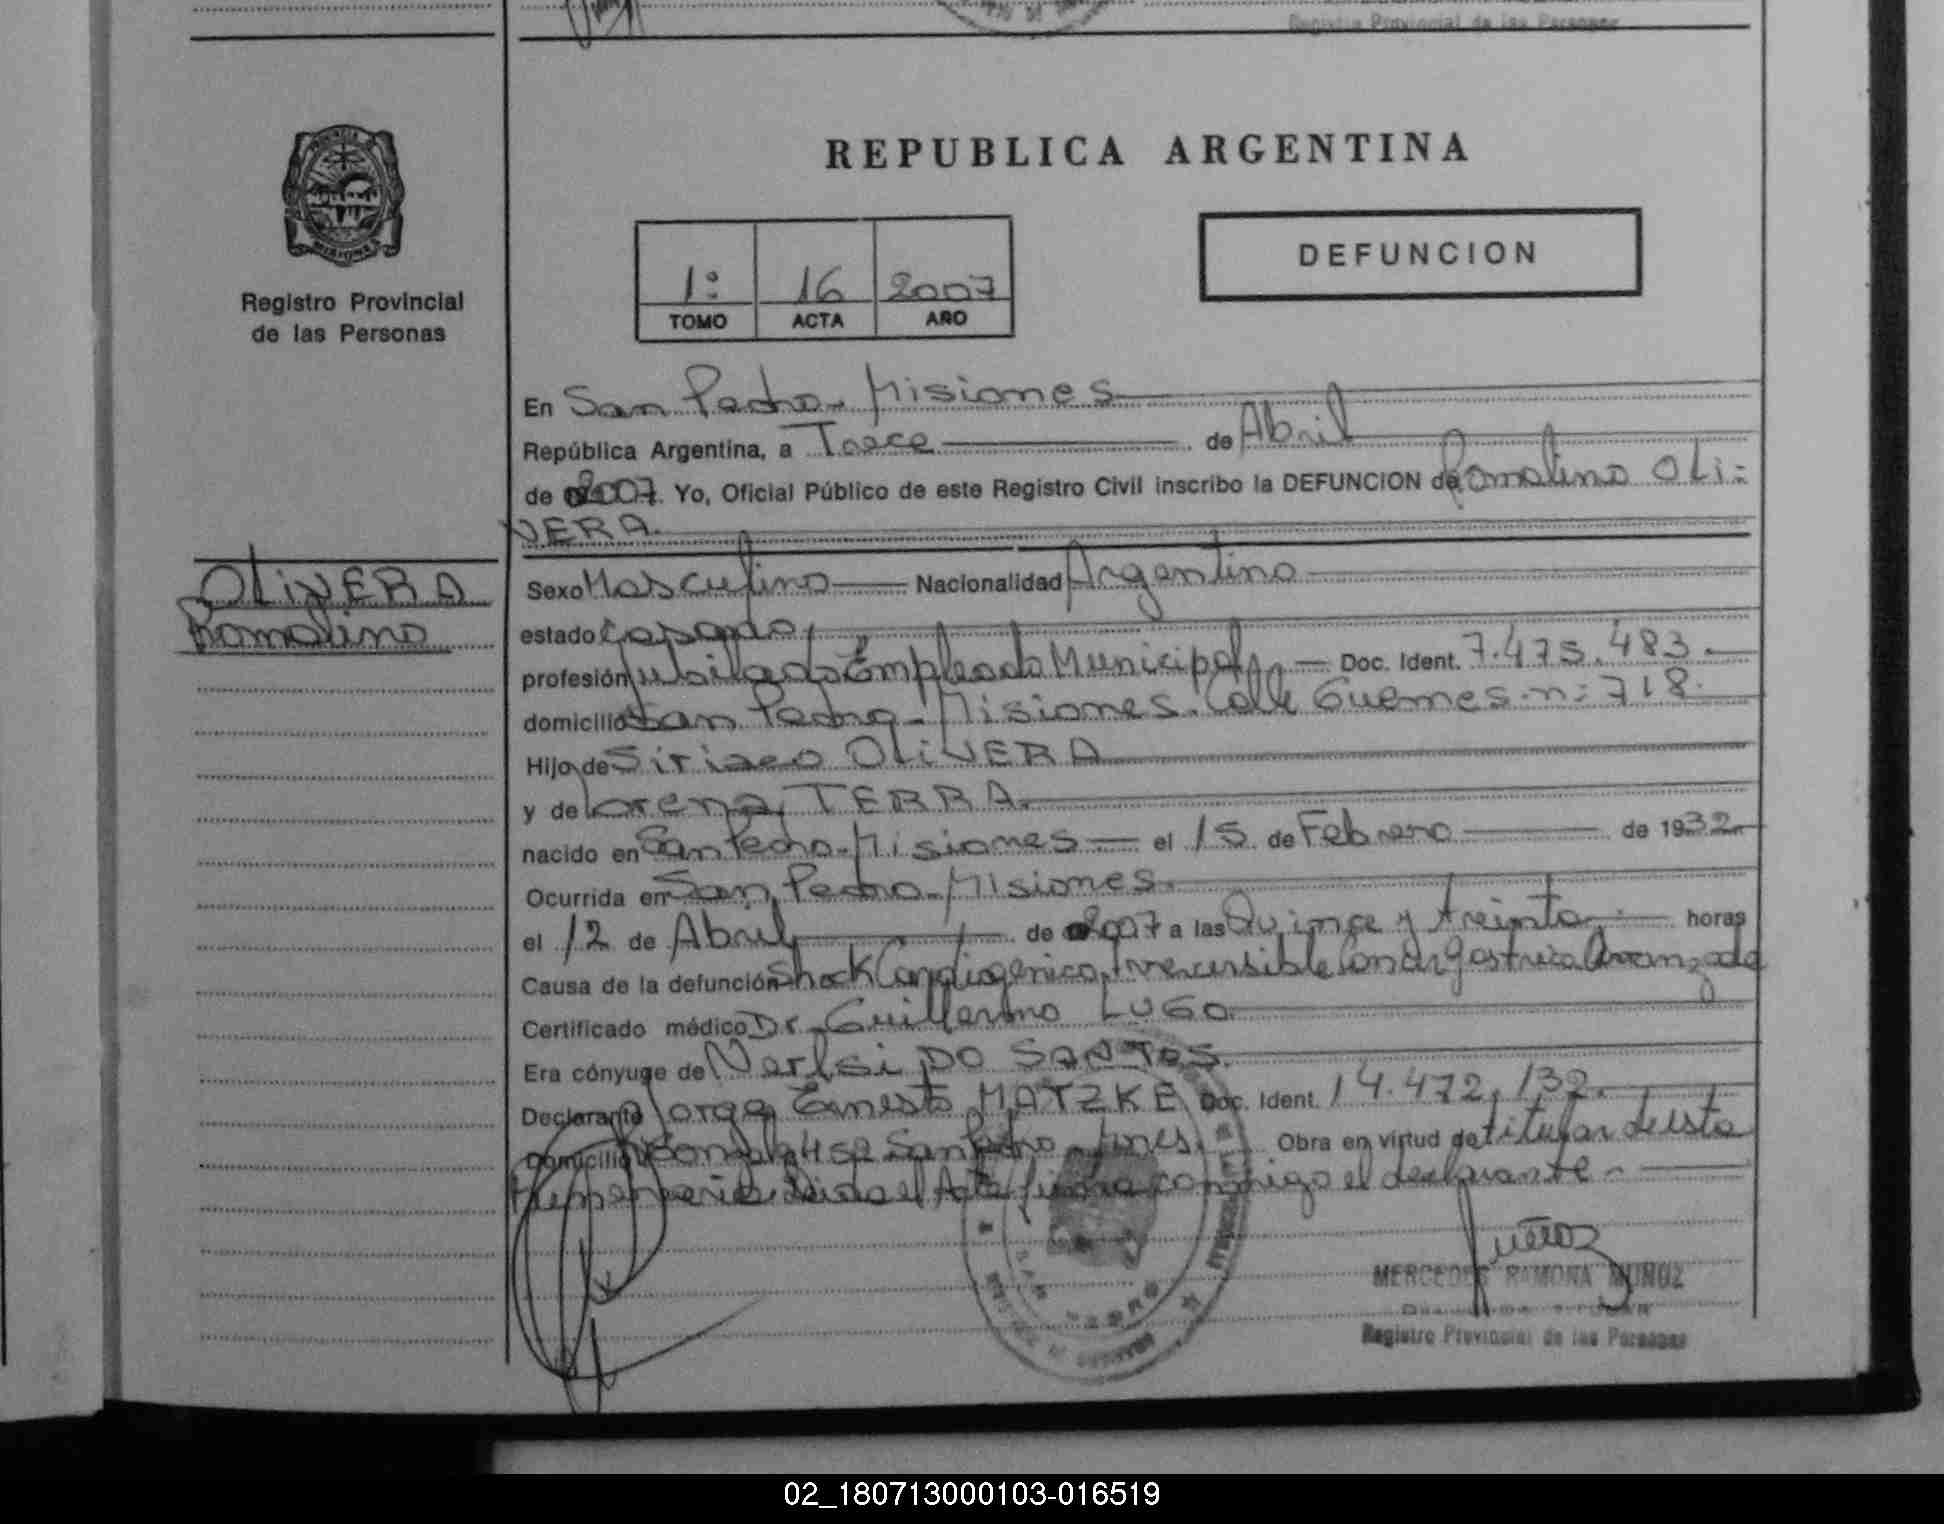 Registro Provincial de las Personas
PROVINCIA DE
MISIONES
Registro Provincial
de las Personas
REPUBLICA ARGENTINA
DEFUNCION
1º 16 2007
TOMO ACTA AÑO
En San Pedro - Misiones
República Argentina, a Trece de Abril
de 2007. Yo, Oficial Público de este Registro Civil inscribo la DEFUNCION de Romalino OLI=
VERA.
OLIVERA
Romalino
Sexo Masculino Nacionalidad Argentino
estado Casado
profesión Jubilado Empleado Municipal Doc. Ident. 7.475.483.-
domicilio San Pedro - Misiones. Calle Guemes nº 718.
Hijo de Siriaco OLIVERA
y de Lorena TERRA.
nacido en San Pedro - Misiones el 15 de Febrero de 1932.
Ocurrida en San Pedro - Misiones.
el 12 de Abril de 2007 a las Quince y treinta horas
Causa de la defunción Shock Cardiogenico Irreversible Cancer Gastrico Avanzado
Certificado médico Dr. Guillermo LUGO
Era cónyuge de Nerlsi DO SANTOS.
Declarante Jorge Ernesto MATZKE Doc. Ident. 14.472.132.
Domicilio San Pedro - Mnes. Obra en virtud de titular de esta
Leida el Acta firma conmigo el declarante -
Muñoz
MERCEDES RAMONA MUÑOZ
Registro Provincial de las Personas
SAN PEDRO
02_180713000103-016519